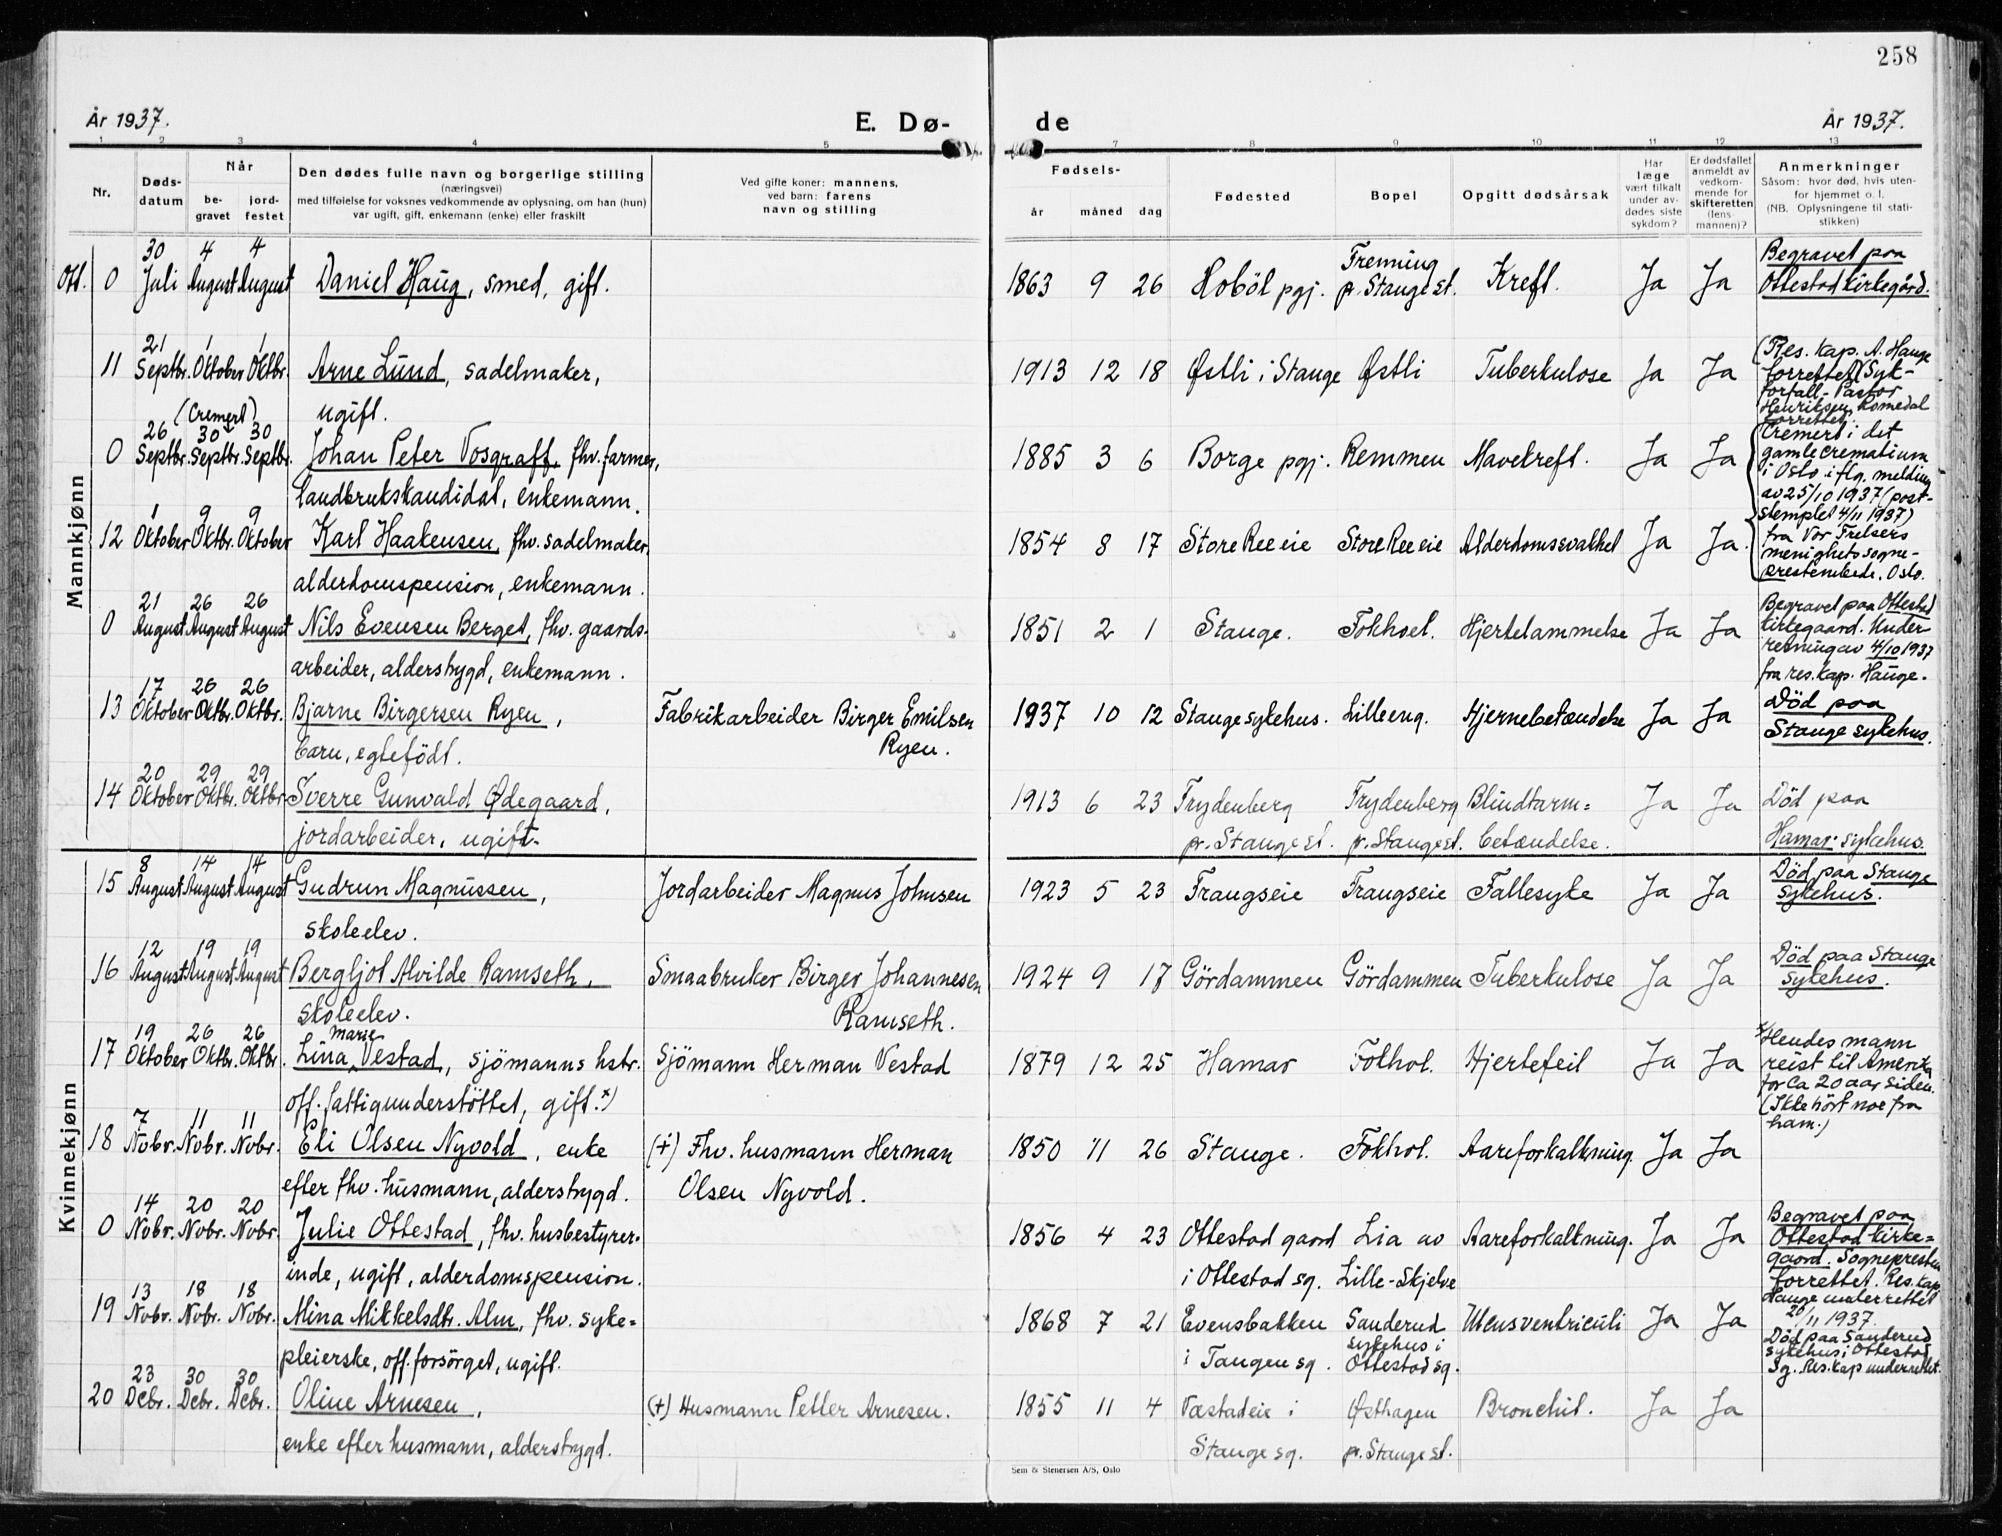 258
År 1937. E. Dø- de År 1937.
1 2 3 4 5 7 8 9 10 11 12 13
Nr. Døds-datum Når be-gravet jord-festet Den dødes fulle navn og borgerlige stilling (næringsvei) med tilføielse for voksnes vedkommende av oplysning, om han (hun) var ugift, gift, enkemann (enke) eller fraskilt Ved gifte koner: mannens, ved barn: farens navn og stilling Fødsels- år måned dag Fødested Bopel Opgitt dødsårsak Har læge vært tilkalt under av-dødes siste sykdom? Er dødsfallet anmeldt av vedkom-mende for skifteretten (lens-mannen)? Anmerkninger Såsom: hvor død, hvis uten-for hjemmet o. l. (NB. Oplysningene til stati-stikken)
Mannkjønn
30 4 4 Freming Begravet paa
Ott. 0 Juli August August Daniel Haug, smed, gift. 1863 9 26 Hoböl pgj. p. Stange st. Kreft. Ja Ja Ottestad kirkegård.
21 1 1 (Res. kap. A. Hauge
11 Septbr. Oktober Oktbr. Arne Lund, sadelmaker, 1913 12 18 Østli i Stange Østli Tuberkulose Ja Ja forrettet (Syk-
(Cremert) ugift. forfall - Pastor
Henriksen, Romedal
forrettet.
26 30 30 Cremert i det
0 Septbr. Septbr. Septbr. Johan Peter Vosgraff, fhv. farmer, 1885 3 6 Borge pgj. Remmen Mavekreft. Ja Ja gamle crematium
landbrukskandidat, enkemann. i Oslo iflg. melding
av 25/10 1937 (post-
1 9 9 stemplet 4/11 1937)
12 Oktober Oktbr. Oktober Karl Haakensen, fhv. sadelmaker, 1854 8 17 Store Ree eie Store Ree eie Alderdomssvakhet Ja Ja. fra Vor Frelsers
alderdomspension, enkemann. menighets sogne-
prestembede, Oslo.
21 26 26 Begravet paa Ottestad
0 August August August Nils Evensen Berget, fhv. gaards- 1851 2 1 Stange. Fokhol. Hjertelammelse Ja Ja kirkegaard. Under-
arbeider, alderstrygd, enkemann. retning av 4/10 1937
fra res. kap. Hauge.
17 26 26 Död paa
13 Oktober Oktbr. Oktbr. Bjarne Birgersen Ryen, Fabrikarbeider Birger Emilsen 1937 10 12 Stange sykehus. Lilleeng. Hjernebetændelse Ja Ja Stange sykehus.
barn, egtefödt. Ryen.
20 29 29
14 Oktober Oktbr. Oktbr. Sverre Gunvald Ødegaard, 1913 6 23 Frydenberg Frydenberg Blindtarm= Ja Ja Död paa
jordarbeider, ugift. pr. Stange st. pr. Stange st. betændelse. Hamar sykehus.
Kvinnekjønn
8 14 14 Död paa Stange
15 August August August Gudrun Magnussen, Jordarbeider Magnus Johnsen 1923 5 23 Frangseie Frangseie Fallesyke Ja Ja sykehus.
skoleelev.
12 19 19 Död paa Stange
16 August August August Bergljot Alvilde Ramseth, Smaabruker Birger Johannesen 1924 9 17 Gördammen Gördammen Tuberkulose Ja Ja sykehus.
skoleelev. Ramseth.
19 26 26 Marie x/Hendes mann
17 Oktober Oktbr. Oktbr. Lina Vestad, sjömanns hstr. Sjömann Herman Vestad 1879 12 25 Hamar Fokhol. Hjertefeil Ja Ja reist til Amerika
off. fattigunderstöttet, gift. x) for ca 20 aar siden.
(Ikke hört noe fra
ham.)
7 11 11
18 Nobr. Nobr. Nobr. Eli Olsen Nyvold, enke (+) Fhv. husmann Herman 1850 11 26 Stange. Fokhol. Aareforkalkning. Ja Ja
efter fhv. husmann, alderstrygd. Olsen Nyvold.
14 20 20 Begravet paa
0 Nobr. Nobr. Nobr. Julie Ottestad, fhv. husbestyrer- 1856 4 23 Ottestad gaard Lia av Aareforkalkning. Ja Ja Ottestad kirke=
inde, ugift, alderdomspension. i Ottestad sg. Lille-Skjelve gaard. Sognepresten
forrettet. Res. kap.
Hauge underrettet
20/11 1937.
13 18 18
19 Nobr. Nobr. Nobr. Mina Mikkelsdtr. Alm, fhv. syke= 1868 7 21 Evensbakken Sanderud Ulcus ventriculi Ja Ja Död paa Sanderud
pleierske, off. forsörget, ugift. i Tangen sg. sykehus i Ottestad sg. sykehus i Ottestad
Sg. Res. kap underrettet.
23 30 30
20 Dcbr. Dcbr. Dcbr. Oline Arnesen, (+) Husmann Petter Arnesen. 1855 11 4 Væstadeie i Østhagen Bronchit. Ja Ja
enke efter husmann, alderstrygd. Stange sg. pr. Stange st.
Sem & Stenersen A/S, Oslo